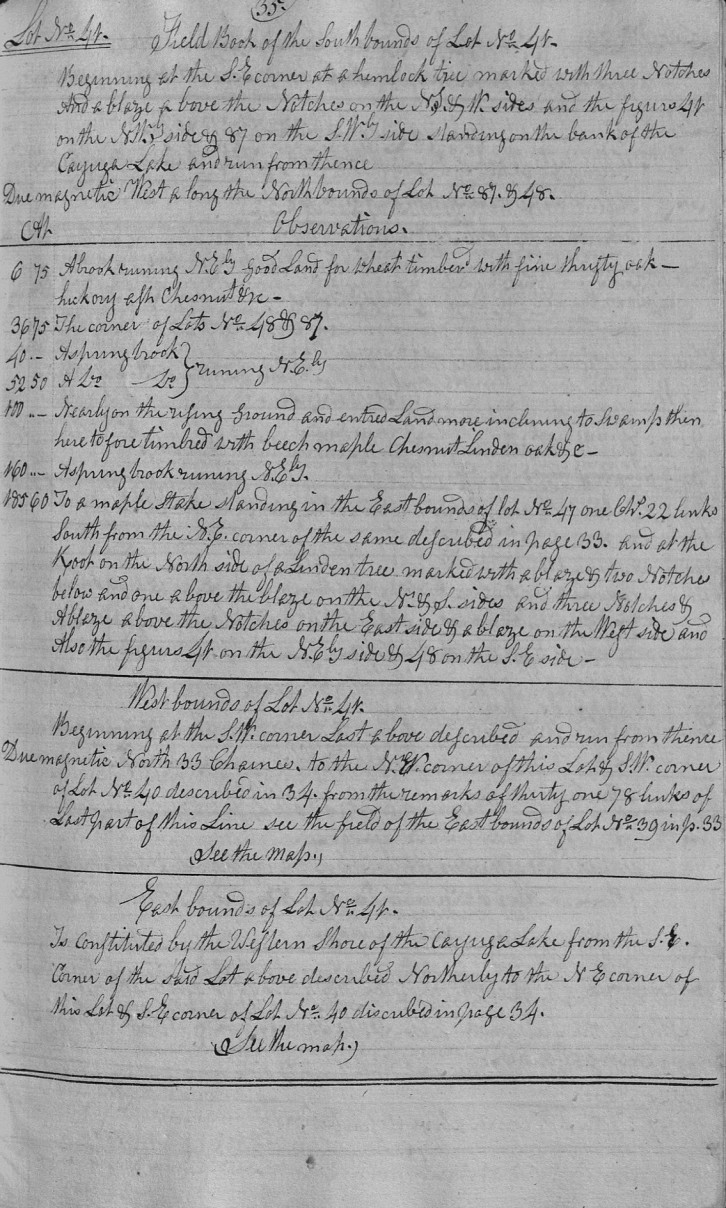 35.
Lot No. 41. Field Book of the South bounds of Lot No. 41.
Beginning at the S.E corner at a hemlock tree marked with three Notches
And a blaze above the Notches on the N,S,& W. sides and the figurs 41
on the N.W.ly side & 87 on the S.W.ly side standing on the bank of the
Cayuga Lake and run from thence
Due magnetic West a long the North bounds of Lot No. 87. & 48.
Observations.
6 75 A brook runing N.E.ly Good Land for wheat timberd with fine thrifty oak —
hickory ash Chesnut &c —
36 75 The corner of Lots No. 48 & 87.
40 .. — A spring brook
52 50 A Do Do } runing N.E.ly
100 .. — Nearly on the rising Ground and entred Land more inclining to Swamp then
here to fore timbred with beech maple Chesnut Linden oak &c —
160 .. — A spring brook runing N.E.ly.
185 60 To a maple Stake standing in the East bounds of lot No. 47 one Ch. 22 links
South from the N.E. corner of the same described in page 33. and at the
Root on the North side of a Linden tree marked with a blaze & two Notches
below and one a above the blaze on the N. & S. sides and three Notches &
A blaze above the Notches on the East side & a blaze on the West side and
Also the figurs 41 on the N.E.ly side & 48 on the S.E side —
West bounds of Lot No. 41.
Beginning at the S.W. corner Last above described and run from thence
Due magnetic North 33 Chaines. to the N.W. corner of this Lot & S.W. corner
of Lot No. 40 described in 34. from the remarks of thirty one 78 links of
Last part of this Line see the field of the East bounds of Lot No. 39 in p. 33
(See the map.)
East bounds of Lot No. 41.
Is constituted by the Western Shore of the Cayuga Lake from the S.E.
Corner of the said Lot above described Northerly to the N E corner of
this Lot & S.E corner of Lot No. 40 discribed in page 34.
(See the map.)